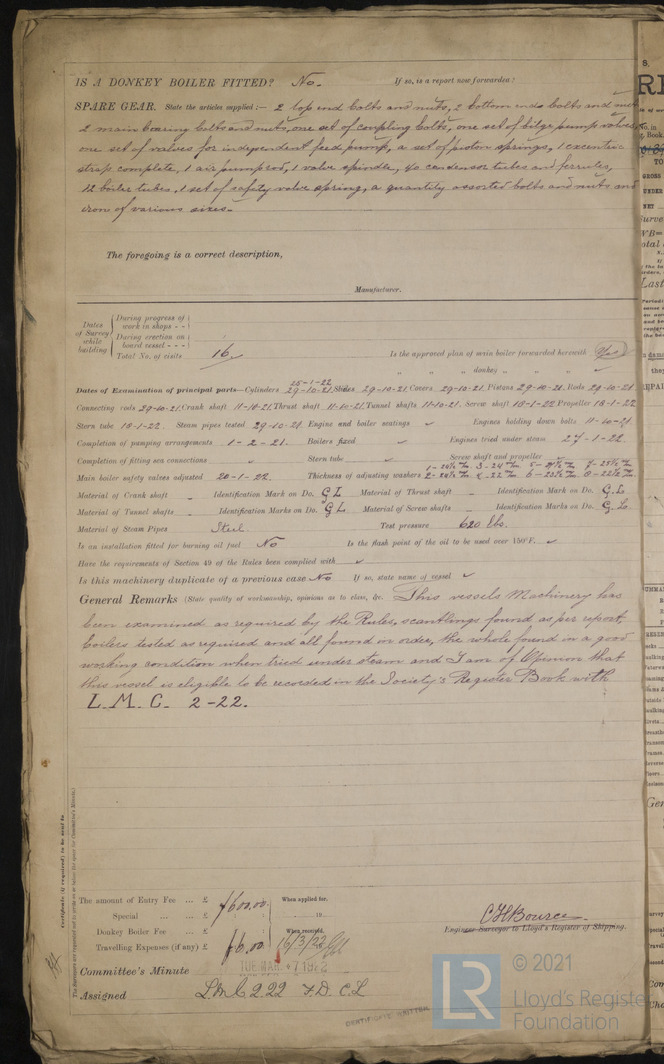 IS A DONKEY BOILER FITTED? No. If so, is a report now forwarded?
SPARE GEAR. State the articles supplied:— 2 top end bolts and nuts, 2 bottom ends bolts and nuts
2 main bearing bolts and nuts, one set of coupling bolts, one set of bilge pump valves,
one set of valves for independent feed pump, a set of piston springs, 1 excentric
strap complete, 1 air pump rod, 1 valve spindle, 40 condensor tubes and ferrules,
12 boiler tubes, 1 set of safety valve spring, a quantity assorted bolts and nuts and
iron of various sizes.
The foregoing is a correct description,
Manufacturer.
Dates of Survey while building
During progress of work in shops - -
During erection on board vessel - - -
Total No. of visits 16. Is the approved plan of main boiler forwarded herewith Yes
" " " donkey " " "
25-1-22
Dates of Examination of principal parts—Cylinders 29-10-21 Slides 29-10-21 Covers 29-10-21 Pistons 29-10-21 Rods 29-10-21
Connecting rods 29-10-21 Crank shaft 11-10-21 Thrust shaft 11-10-21 Tunnel shafts 11-10-21 Screw shaft 18-1-22 Propeller 18-1-22
Stern tube 18-1-22. Steam pipes tested 29-10-21 Engine and boiler seatings ✓ Engines holding down bolts 11-10-21
Completion of pumping arrangements 1-2-21. Boilers fixed ✓ Engines tried under steam 27-1-22.
Completion of fitting sea connections ✓ Stern tube ✓ Screw shaft and propeller ✓
Main boiler safety valves adjusted 20-1-22. Thickness of adjusting washers
Material of Crank shaft Identification Mark on Do. G L Material of Thrust shaft Identification Mark on Do. G.L
Material of Tunnel shafts Identification Marks on Do. G L Material of Screw shafts Identification Marks on Do. G.L.
Material of Steam Pipes Steel Test pressure 620 lbs.
Is an installation fitted for burning oil fuel No Is the flash point of the oil to be used over 150°F. ✓
Have the requirements of Section 49 of the Rules been complied with ✓
Is this machinery duplicate of a previous case No If so, state name of vessel ✓
General Remarks (State quality of workmanship, opinions as to class, &c. This vessels Machinery has
been examined as required by the Rules, scantlings found as per report,
boilers tested as required and all found in order, the whole found in a good
working condition when tried under steam and I am of Opinion that
this vessel is eligible to be recorded in the Society's Register Book with
L.M.C. 2-22.
Certificate (if required) to be sent to
The amount of Entry Fee ... £ 1600.00 When applied for,
Special ... £ 19
Donkey Boiler Fee ... £ When received,
Travelling Expenses (if any) £ 16/3/22
C H Bouren
Engineer Surveyor to Lloyd's Register of Shipping.
Committee's Minute TUE MAR. 7 1922
Assigned LMC 2.22 F.D. C.L
CERTIFICATE WRITTEN
LR © 2021
Lloyd's Register
Foundation